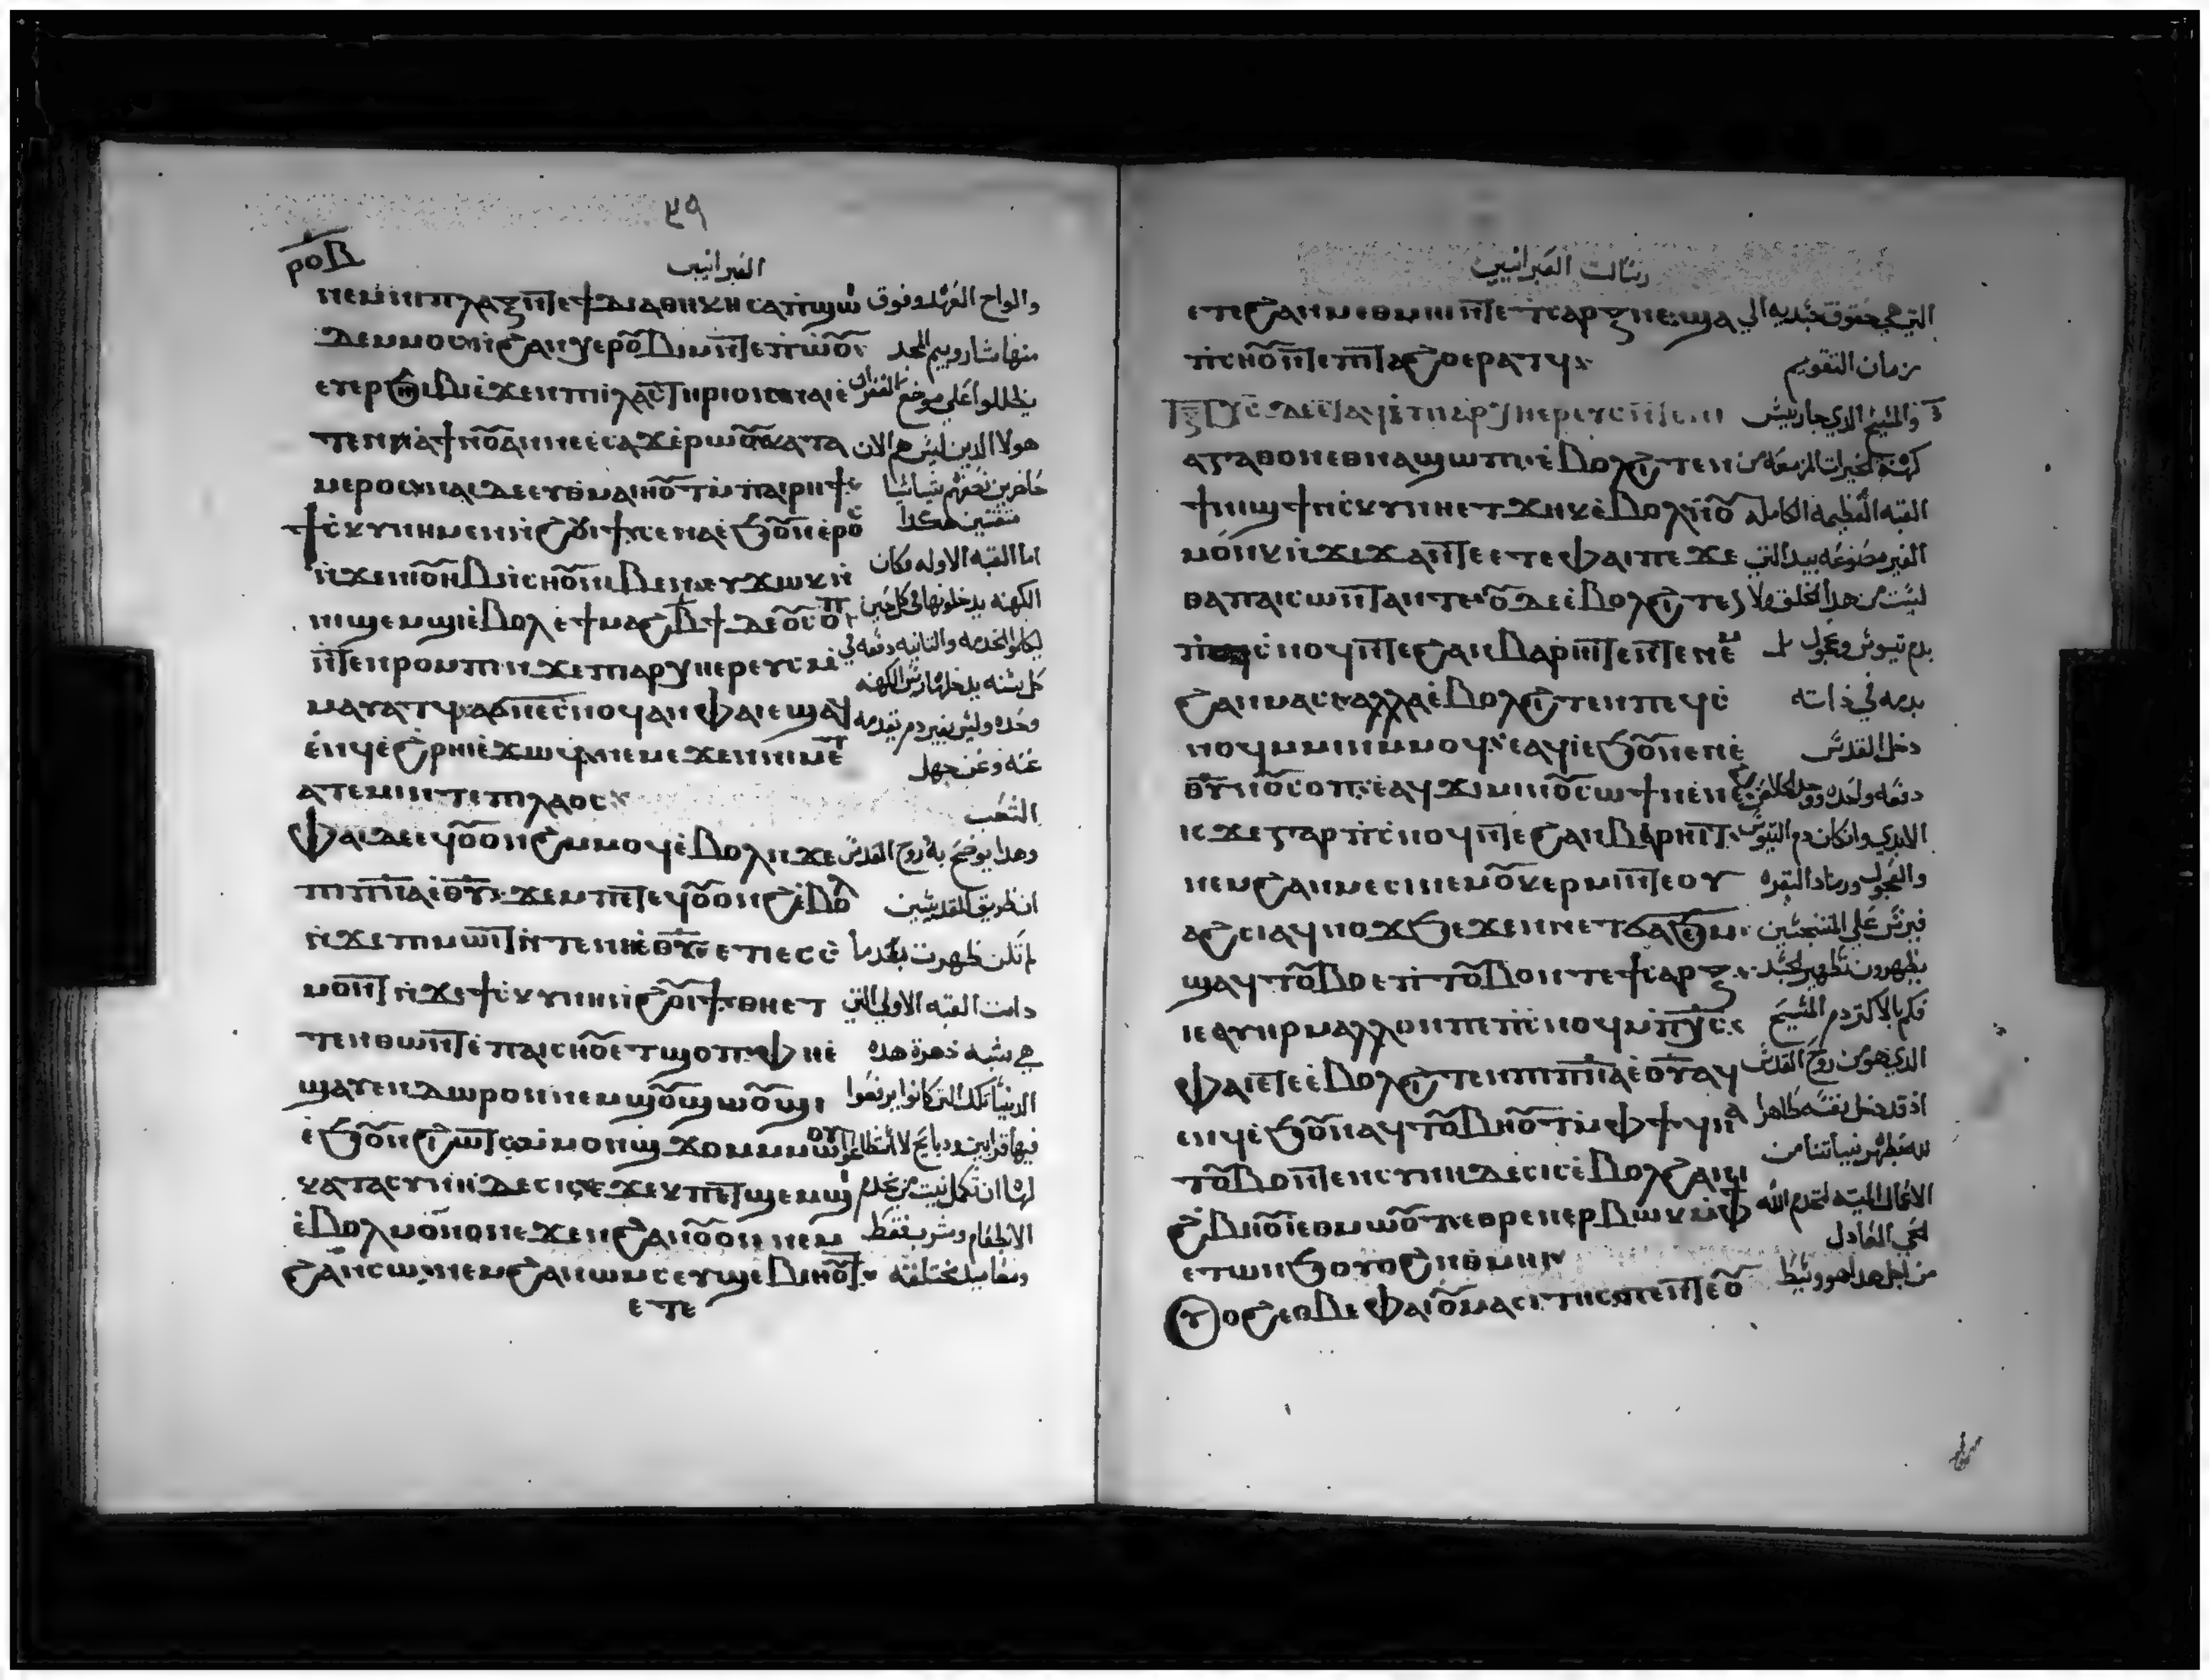 ٣٩
ⲣⲟⲃ
العبرانيين
ⲛⲉⲙⲛⲓⲡⲗⲁⲝⲛ̄ⲧⲉϯⲇⲓⲁⲑⲏⲕⲏⲥⲁⲡϣⲱⲓ والواح العهد وفوق
ⲇⲉⲙⲙⲟⲥⲛⲓϩⲁⲛⲭⲉⲣⲟⲩⲃⲓⲙⲛ̄ⲧⲉⲡⲱⲟⲩ منها شاروبيم المجد
ⲉⲩⲉⲣϧⲏⲓⲃⲓⲉϫⲉⲛⲡⲓⲓⲗⲁⲥⲧⲏⲣⲓⲟⲛ يظللوا على موضع الغفران
ⲧⲉⲛⲛⲁϯⲛⲟⲩⲁⲛⲛⲉⲉⲥⲁϫⲓⲉⲣⲱⲟⲩⲕⲁⲧⲁ هولا الدين ليس هم الان
ⲙⲉⲣⲟⲥ ⲛⲁⲓⲇⲉⲉⲩⲑⲙⲁⲓⲏⲟⲩⲧⲙ̀ⲡⲁⲓⲣⲏϯ
متقنين هكدا
ϯⲥⲕⲩⲛⲏⲙⲉⲛⲛ̀ϩⲟⲩⲓϯⲥⲉⲛⲁⲉϧⲟⲩⲛⲉⲣⲟⲥ اما القبه الاوله فكان
ⲛ̀ϫⲉⲛⲓⲟⲩⲏⲃⲛ̀ⲥⲏⲟⲩⲛⲓⲃⲉⲛⲉⲩϫⲱⲕⲛ̀ الكهنه يدخلونها في كل حين
ⲛⲓϣⲉⲙϣⲓⲉⲃⲟⲗⲉϯⲙⲁϩⲃ̄ϯⲇⲉⲟⲩⲥⲟⲡ يكملوا الخدمه والتانيه دفعه في
ⲛ̄ⲧⲉⲛⲣⲟⲙⲡⲓⲛ̀ϫⲉⲡⲁⲣⲭⲏⲉⲣⲉⲩⲥⲙ̀ كل سنه يدخلها ريس الكهنه
ⲙⲁⲩⲁⲧϥⲁϭⲛⲉⲥⲛⲟϥⲁⲛⲫⲁⲓⲉϣⲁϥ وحده وليس بغير دم يقدمه
ⲉⲛϥⲉϩⲣⲏⲓⲉϫⲱϥⲛⲉⲙⲉϫⲉⲛⲛⲓⲙⲉⲧ عنه وعن جهل
ⲁⲧⲉⲙⲓⲛⲧⲉⲡⲓⲗⲁⲟⲥ الشعب
ⲫⲁⲓⲇⲉⲉϥⲟⲩⲟⲛϩⲙⲙⲟϥⲉⲃⲟⲗⲛ̀ϫⲉ وهدا يوضح به روح القدس
ⲡⲓⲡⲛⲁⲉⲑⲩ ϫⲉⲙⲡⲁⲧⲉϥⲟⲩⲟⲛϩⲉⲃⲟⲗ ان طريق القديسين
ⲛ̀ϫⲉⲡⲓⲙⲱⲓⲧⲛ̀ⲧⲉⲛⲏⲉⲑⲩⲉⲧⲓⲉⲥⲥ لم تكن ظهرت بعد ما
ⲙⲟⲛⲧⲛ̀ϫⲉϯⲥⲕⲩⲛⲏⲛ̀ϩⲟⲩⲓϯⲑⲏⲉⲧ دامت القبه الاولي التي
ⲧⲉⲛⲑⲱⲛ̄ⲧⲉⲡⲁⲓⲥⲏⲟⲩⲉⲧϣⲟⲡⲫⲏⲉ هي شبه زهرة هده
ϣⲁⲩⲉⲛⲇⲱⲣⲟⲛⲛⲉⲙϣⲟⲩϣⲱⲟⲩϣⲓ الدنيا تلك التي كانوا يرفعوا
ⲉϧⲟⲩⲛϩⲓⲱⲧⲥ ⲙⲙⲟⲛϣϫⲟⲙⲙⲙⲱⲟⲩ فيها قرابين ودبايح لا استطاعوا
ⲕⲁⲧⲁⲥⲩⲛⲏⲇⲉⲥⲓⲥ ϫⲉⲕⲡⲉⲧϣⲉⲙϣⲓ لها ان تكمل نيت من يخدم
ⲉⲃⲟⲗⲙⲟⲛⲟⲛⲉϫⲉⲛϩⲁⲛⲟⲩⲟⲙⲛⲉⲙ الا بالطعام وشرب فقط
ϩⲁⲛⲥⲱ ⲛⲉⲙϩⲁⲛⲱⲙⲥⲉⲩϣⲉⲃⲓⲏⲟⲩⲧ ومعاميد مختلفه
ⲉⲧⲉ
رسالت العبرانيين
ⲉⲧⲉϩⲁⲛⲙⲉⲑⲙⲏⲓⲛ̄ⲧⲉⲧⲥⲁⲣⲝⲛⲉ ϣⲁ التي هي حقوق جسديه الي
ⲡⲥⲏⲟⲩⲛ̄ⲧⲉⲡⲧⲁϩⲟⲉⲣⲁⲧϥ زمان التقويم
ⲡⲭⲥ ⲇⲉⲉⲧⲁϥⲓⲡⲁⲣⲭⲏⲉⲣⲉⲩⲥⲛ̄ⲧⲉⲛⲓ والمسيح الدي جا ريس
ⲁⲅⲁⲑⲟⲛⲉⲑⲛⲁϣⲱⲡⲓ ⲉⲃⲟⲗϩⲓⲧⲉⲛ كهنة الخيرات المزمعه من
ϯⲛⲓϣϯⲛⲥⲕⲩⲛⲏⲉⲧϫⲏⲕⲉⲃⲟⲗⲛ̀ⲟⲩ القبه العظيمه الكامله
ⲙⲟⲩⲛⲕⲛ̀ϫⲓϫⲁⲛⲧⲉⲉⲧⲉⲫⲁⲓⲡⲉϫⲉ الغير مصنوعه بيد التي
ⲑⲁⲡⲁⲓⲥⲱⲛⲧⲁⲛⲧⲉ ⲟⲩⲇⲉⲉⲃⲟⲗϩⲓⲧⲉⲛ ليست من هدا الخلق ولا
ⲥⲛⲟϥⲛ̄ⲧⲉϩⲁⲛⲃⲁⲣⲏⲓⲧⲉⲛⲧⲉⲛⲉⲙ بدم تيوس وعجول بل
ϩⲁⲛⲙⲁⲥⲓⲁⲗⲗⲁⲉⲃⲟⲗϩⲓⲧⲉⲛⲡⲉϥⲥ بدمه في ذاته
ⲛⲟϥⲙⲙⲓⲛⲙⲙⲟϥ ⲉⲁϥⲓⲉϧⲟⲩⲛⲉⲛⲉ دخل القدس
ⲑⲩⲛⲟⲩⲥⲟⲡ ⲉⲁϥϫⲓⲙⲓⲛⲟⲩⲥⲱϯⲛⲉⲛⲉϩ دفعه واحده ووجد الخلاص
ⲓⲥϫⲉⲅⲁⲣⲡⲥⲛⲟϥⲛ̄ⲧⲉϩⲁⲛⲃⲁⲣⲏⲓⲧ الابدي وان كان دم التيوس
ⲛⲉⲙϩⲁⲛⲙⲉⲥⲓⲛⲉⲙⲟⲩⲕⲉⲣⲙⲓⲛ̄ⲧⲉⲟⲩ والعجول ورماد البقره
ⲁϩⲥⲓⲁⲩⲛⲟϫϧⲉϫⲉⲛⲛⲉⲧϭⲁϧⲉⲙ فيرش علي المتنجسين
ϣⲁϥⲧⲟⲩⲃⲟⲉⲡⲧⲟⲩⲃⲟⲛⲧⲉϯⲥⲁⲣⲝ يطهرون تطهير الجسد
ⲓⲉⲁⲩⲏⲣⲙⲁⲗⲗⲟⲛⲡⲉⲡⲥⲛⲟϥⲙ̀ⲡⲭⲥ فكم بالاكتر دم المسيح
ⲫⲁⲓⲉⲧⲉⲉⲃⲟⲗϩⲓⲧⲉⲛⲡⲓⲡⲛⲁⲉⲑⲟⲩⲁⲃ الدي هو من روح القدس
ⲉⲛϥⲉϧⲟⲩⲛⲁϥⲧⲟⲩⲃⲏⲟⲩⲧⲙ̀ⲫϯϥⲛⲁ اذ قد دخل نفسه طاهرا
ⲧⲟⲩⲃⲟⲛ̄ⲧⲉⲛⲥⲩⲛⲏⲇⲉⲥⲓⲥⲉⲃⲟⲗϩⲁⲛⲓ لله مطهر نياتنا من
ϩⲃⲏⲟⲩⲓⲉⲑⲙⲱⲟⲩⲧ ⲉⲑⲣⲉⲛⲉⲣⲃⲱⲕⲙ̀ⲫϯ الاعمال الميته لنخدم الله
ⲉⲧⲱⲛϧⲟⲩⲟϩⲛⲑⲙⲏⲓ الحي العادل
ⲟⲩⲟϩⲉⲑⲃⲉⲫⲁⲓⲟⲩⲙⲁⲥⲓⲧⲏⲥⲡⲉⲛ̄ⲧⲉⲟⲩ من اجل هدا هو وسيط